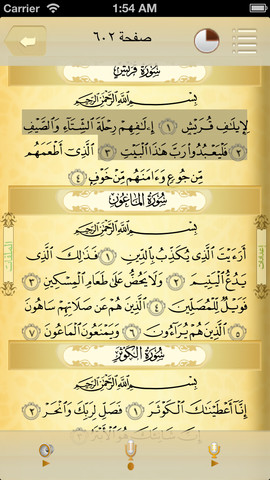 1:54 AM
صفحة ٦٠٢
سُورَةُ قُرَيْشٍ
بِسْمِ اللَّهِ الرَّحْمَٰنِ الرَّحِيمِ
لِإِيلَٰفِ قُرَيْشٍ ١ إِۦلَٰفِهِمْ رِحْلَةَ الشِّتَآءِ وَالصَّيْفِ
٢ فَلْيَعْبُدُوا۟ رَبَّ هَٰذَا الْبَيْتِ ٣ الَّذِىٓ أَطْعَمَهُم
مِّن جُوعٍ وَءَامَنَهُم مِّنْ خَوْفٍۭ ٤
سُورَةُ الْمَاعُونِ
بِسْمِ اللَّهِ الرَّحْمَٰنِ الرَّحِيمِ
أَرَءَيْتَ الَّذِى يُكَذِّبُ بِالدِّينِ ١ فَذَٰلِكَ الَّذِى
يَدُعُّ الْيَتِيمَ ٢ وَلَا يَحُضُّ عَلَىٰ طَعَامِ الْمِسْكِينِ ٣
فَوَيْلٌ لِّلْمُصَلِّينَ ٤ الَّذِينَ هُمْ عَن صَلَاتِهِمْ سَاهُونَ
٥ الَّذِينَ هُمْ يُرَآءُونَ ٦ وَيَمْنَعُونَ الْمَاعُونَ ٧
سُورَةُ الْكَوْثَرِ
بِسْمِ اللَّهِ الرَّحْمَٰنِ الرَّحِيمِ
إِنَّآ أَعْطَيْنَٰكَ الْكَوْثَرَ ١ فَصَلِّ لِرَبِّكَ وَانْحَرْ
٢ إِنَّ شَانِئَكَ هُوَ الْأَبْتَرُ ٣